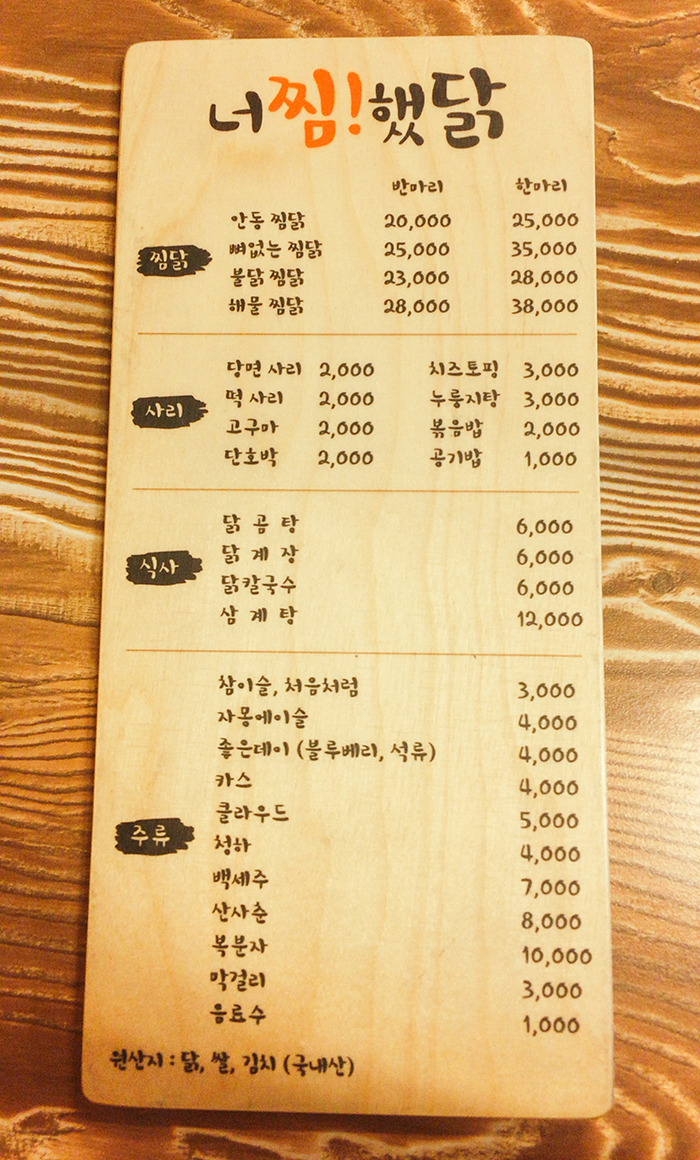 너찜!했닭
반마리 한마리
안동 찜닭 20,000 25,000
뼈없는 찜닭 25,000 35,000
찜닭
불닭 찜닭 23,000 28,000
해물 찜닭 28,000 38,000
당면 사리 2,000 치즈토핑 3,000
떡 사리 2,000 누룽지탕 3,000
사리
고구마 2,000 볶음밥 2,000
단호박 2,000 공기밥 1,000
닭 곰 탕 6,000
닭 계 장 6,000
식사
닭칼국수 6,000
삼 계 탕 12,000
참이슬, 처음처럼 3,000
자몽에이슬 4,000
좋은데이 (블루베리, 석류) 4,000
카스 4,000
클라우드 5,000
주류
청하 4,000
백세주 7,000
산사춘 8,000
복분자 10,000
막걸리 3,000
음료수 1,000
원산지 : 닭, 쌀, 김치 (국내산)